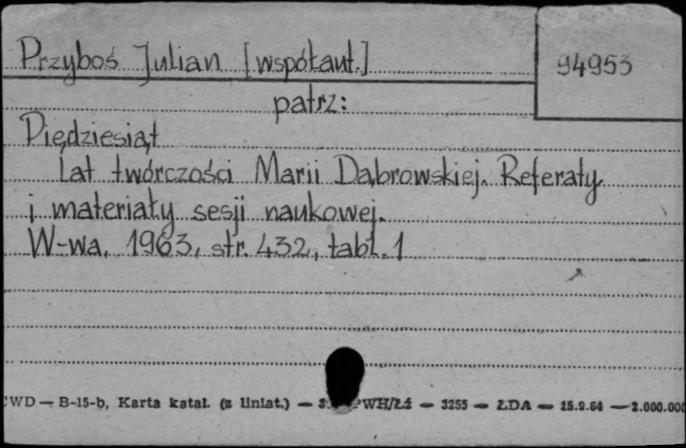 Przyboś Julian [współaut.]
94953
patrz:
Pięćdziesiąt
lat twórczości Marii Dąbrowskiej. Referaty
i materiały sesji naukowej.
W-wa, 1963, str. 432, tabl. 1
CWD — B-15-b, Karta katal. (z liniat.) — PWH/Łź — 3255 — ŁDA — 15.9.64 — 2.000.000